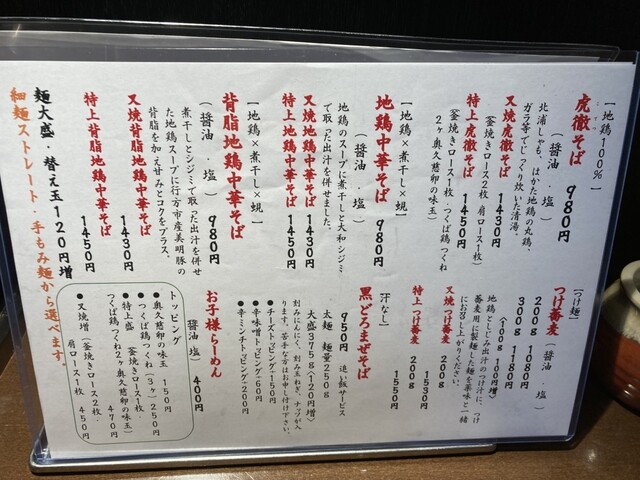 【地鶏100%】
虎徹そば
(醤油・塩) 980円
北浦しゃも、はかた地鶏の丸鶏、
ガラ等でじっくり炊いた清湯。
叉焼虎徹そば 1430円
(釜焼きロース2枚 肩ロース1枚)
特上虎徹そば 1450円
(釜焼きロース1枚、つくば鶏つくね
2ヶ奥久慈卵の味玉)
【地鶏×煮干し×蜆】
地鶏中華そば
(醤油・塩) 980円
地鶏のスープに煮干しと大和シジミ
で取った出汁を併せました。
叉焼地鶏中華そば 1430円
特上地鶏中華そば 1450円
【地鶏×煮干し×蜆】
背脂地鶏中華そば
(醤油・塩) 980円
煮干しとシジミで取った出汁を併せ
た地鶏スープに行方市産美明豚の
背脂を加え甘みとコクをプラス。
叉焼背脂地鶏中華そば 1430円
特上背脂地鶏中華そば 1450円
麺大盛・替え玉120円増
細麺ストレート・手もみ麺から選べます。
【つけ麺】
つけ蕎麦(醤油・塩)
200g 1080円
300g 1180円
<100g 100円増>
地鶏としじみ出汁のつけ汁に、つけ
蕎麦用に製麺した麺を薬味と一緒
にお召し上がりください。
叉焼つけ蕎麦 200g 1530円
特上つけ蕎麦 200g 1550円
【汁なし】
黒どろまぜそば
950円 追い飯サービス
太麺 麺量250g
大盛375g<120円増>
刻みにんにく、刻み玉ねぎ、ナッツが入
ります。苦手な方はお申し付け下さい。
●チーズトッピング+150円
●辛味噌トッピング+60円
●辛ミンチトッピング+200円
お子様らーめん
醤油 塩 400円
トッピング
●奥久慈卵の味玉 150円
●つくば鶏つくね(3ヶ)250円
●特上盛 釜焼きロース1枚・
つくば鶏つくね2ヶ奥久慈卵の味玉)
470円
●叉焼増(釜焼きロース2枚・
肩ロース1枚) 450円